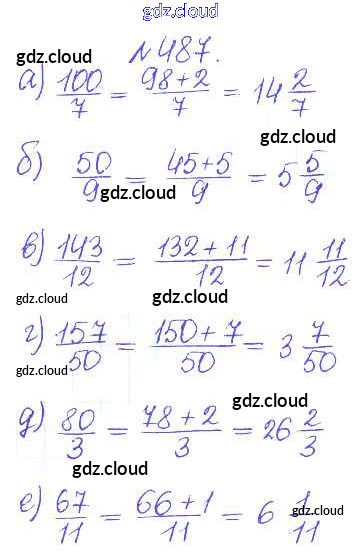 gdz.cloud
№487.
gdz.cloud gdz.cloud
а) 100/7 = 98+2/7 = 14 2/7
gdz.cloud
б) 50/9 = 45+5/9 = 5 5/9
gdz.cloud gdz.cloud
в) 143/12 = 132+11/12 = 11 11/12
gdz.cloud gdz.cloud
г) 157/50 = 150+7/50 = 3 7/50
gdz.cloud
gdz.cloud
д) 80/3 = 78+2/3 = 26 2/3
gdz.cloud
gdz.cloud
е) 67/11 = 66+1/11 = 6 1/11
gdz.cloud
gdz.cloud